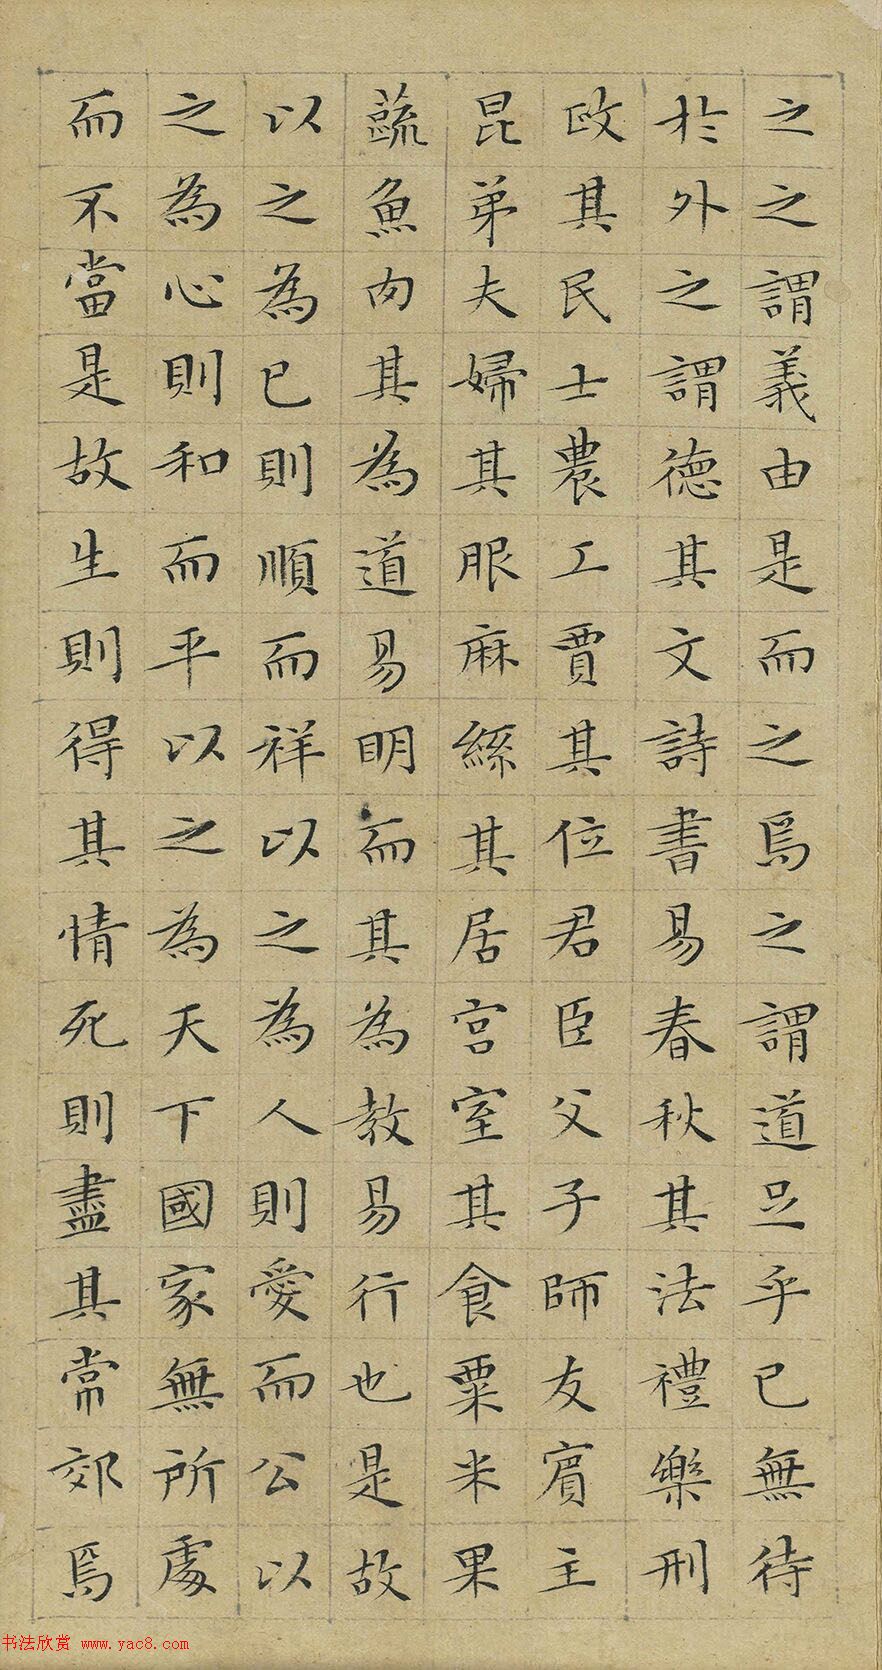 之之謂義由是而之焉之謂道足乎已無待
於外之謂德其文詩書易春秋其法禮樂刑
政其民士農工賈其位君臣父子師友賓主
昆弟夫婦其服麻絲其居宮室其食粟米果
蔬魚肉其為道易明而其為教易行也是故
以之為已則順而祥以之為人則愛而公以
之為心則和而平以之為天下國家無所處
而不當是故生則得其情死則盡其常郊焉
书法欣赏 www.yac8.com